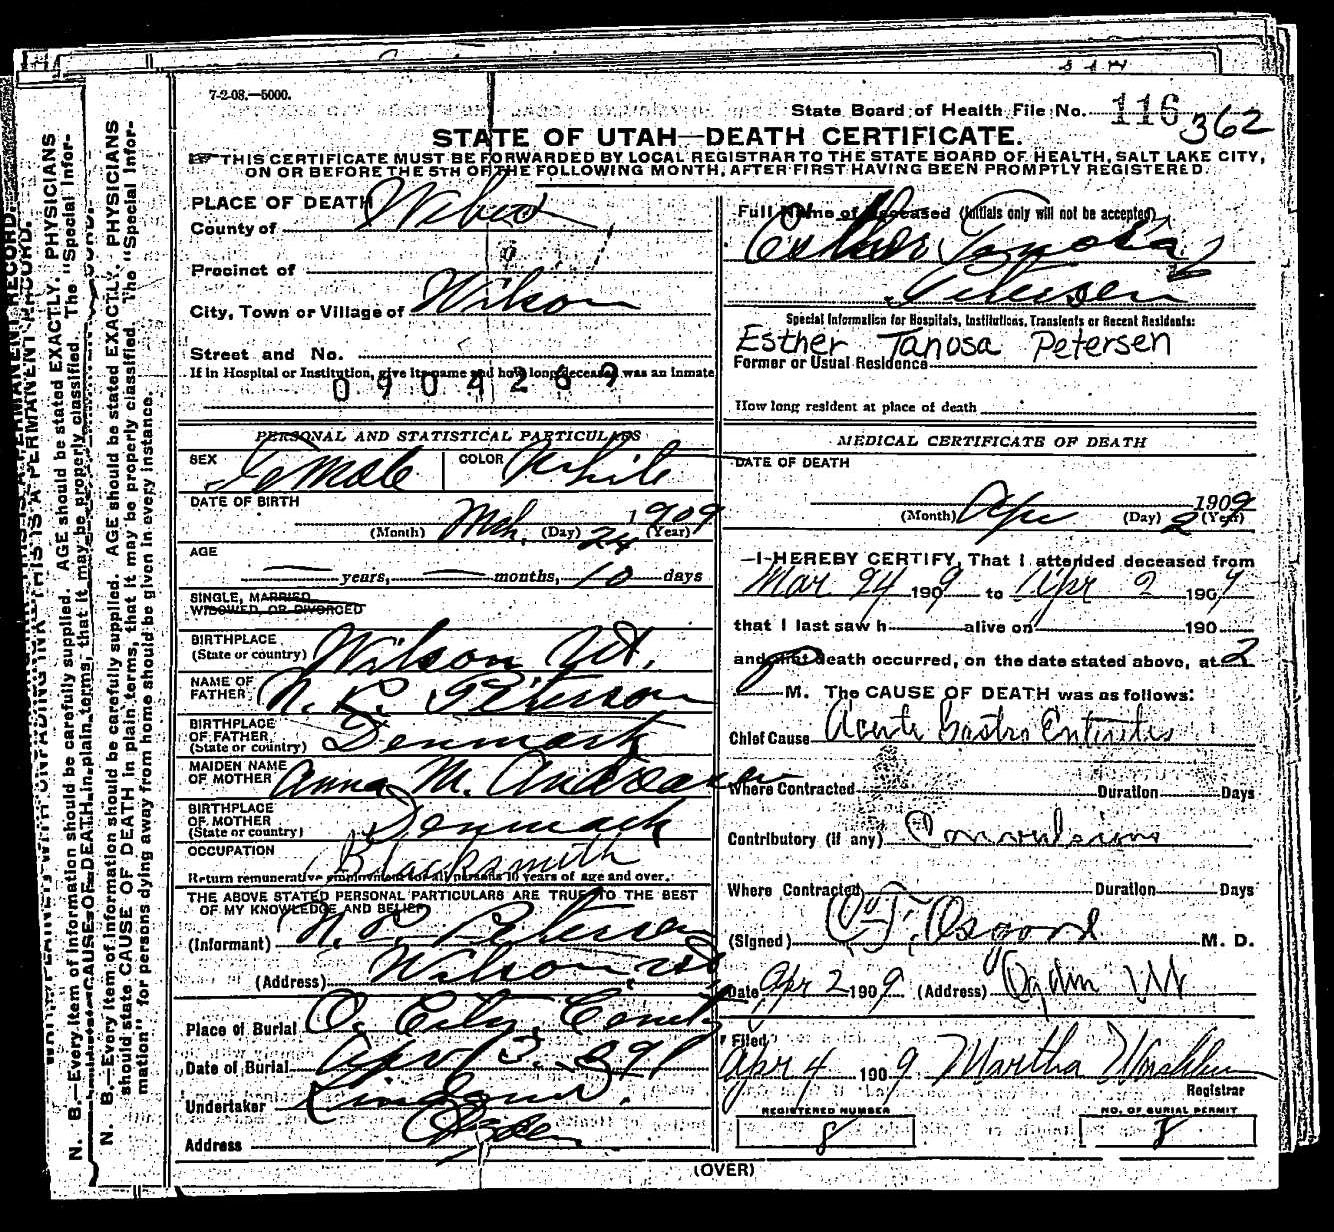 7-2-08.—5000.
State Board of Health File No. 116 362
STATE OF UTAH—DEATH CERTIFICATE.
THIS CERTIFICATE MUST BE FORWARDED BY LOCAL REGISTRAR TO THE STATE BOARD OF HEALTH, SALT LAKE CITY,
ON OR BEFORE THE 5TH OF THE FOLLOWING MONTH, AFTER FIRST HAVING BEEN PROMPTLY REGISTERED.
PLACE OF DEATH
County of Weber
Precinct of
City, Town or Village of Wilson
Street and No.
If in Hospital or Institution, give its name and how long deceased was an inmate
0904269
PERSONAL AND STATISTICAL PARTICULARS
SEX Female COLOR White
DATE OF BIRTH
(Month) Mch. (Day) 24 1909 (Year)
AGE
— years, — months, 10 days
SINGLE, MARRIED
WIDOWED, OR DIVORCED
BIRTHPLACE
(State or country) Wilson Ut.
NAME OF
FATHER N. P. Peterson
BIRTHPLACE
OF FATHER
(State or country) Denmark
MAIDEN NAME
OF MOTHER Anna M. Andreasen
BIRTHPLACE
OF MOTHER
(State or country) Denmark
OCCUPATION Blacksmith
Return remunerative employment of all persons 10 years of age and over.
THE ABOVE STATED PERSONAL PARTICULARS ARE TRUE TO THE BEST
OF MY KNOWLEDGE AND BELIEF
(Informant) N. P. Petersen
(Address) Wilson, Ut
Place of Burial O. City Cemty
Date of Burial Apr 3. 1909
Undertaker
Address Ogden
Full Name of Deceased (Initials only will not be accepted)
Esther Tanosa
Petersen
Special Information for Hospitals, Institutions, Transients or Recent Residents:
Esther Tanosa Petersen
Former or Usual Residence
How long resident at place of death
MEDICAL CERTIFICATE OF DEATH
DATE OF DEATH
(Month) Apr (Day) 2 1909 (Year)
—I HEREBY CERTIFY, That I attended deceased from
Mar. 24 1909 to Apr 2 1909
that I last saw h alive on 190
and that death occurred, on the date stated above, at 2
P M. The CAUSE OF DEATH was as follows:
Chief Cause Acute Gastro Enteritis
Where Contracted Duration Days
Contributory (if any) Convulsions
Where Contracted Duration Days
(Signed) O.F. Osgood M. D.
Date Apr 2 1909 (Address) Ogden Ut
Filed
Apr 4 1909 Martha
Registrar
REGISTERED NUMBER
8
NO. OF BURIAL PERMIT
8
(OVER)
N. B.—Every item of information should be carefully supplied. AGE should be stated EXACTLY. PHYSICIANS
should state CAUSE OF DEATH in plain terms, that it may be properly classified. The "Special Infor-
mation" for persons dying away from home should be given in every instance.